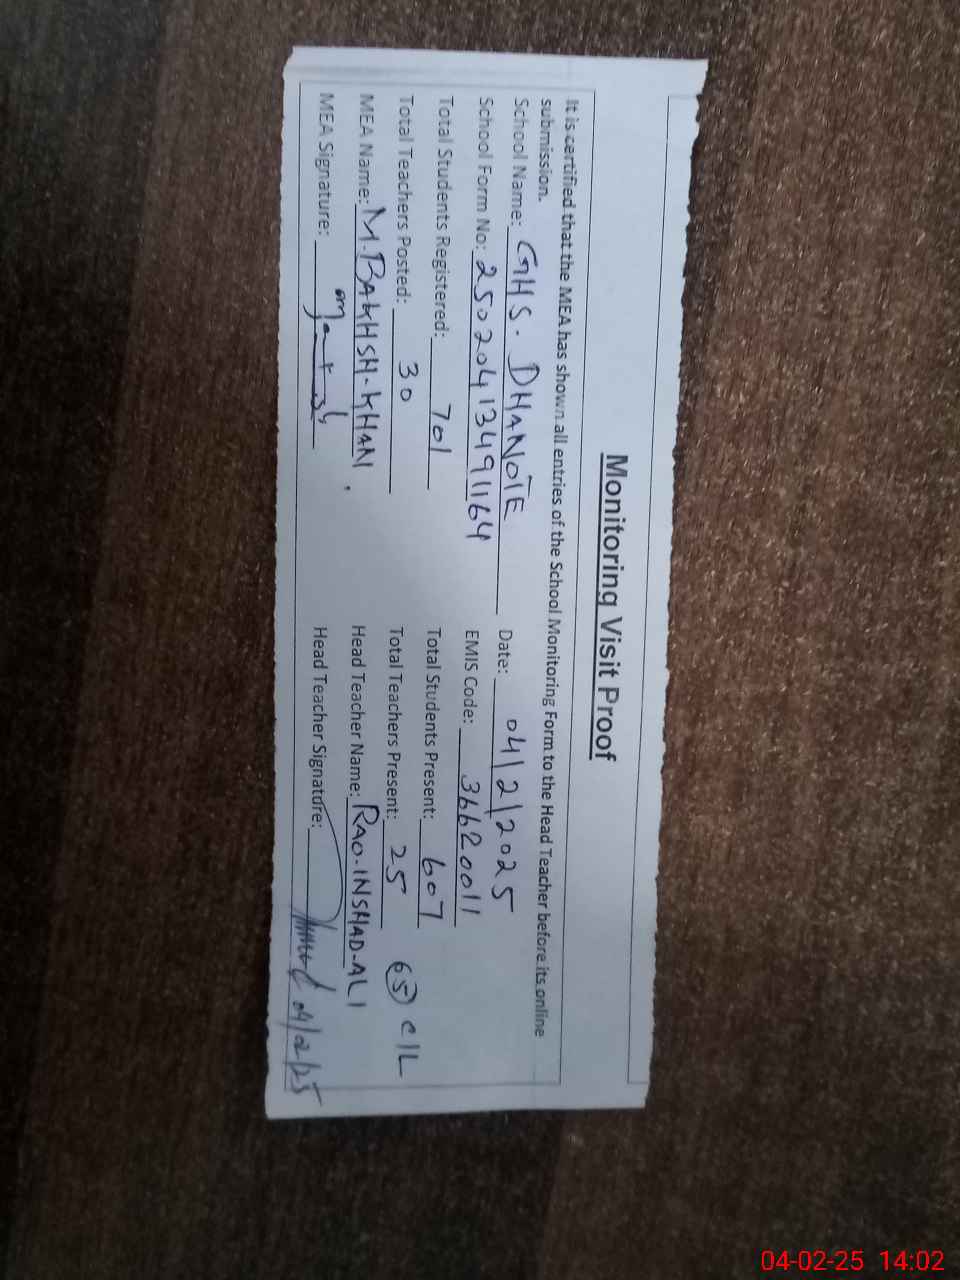 Monitoring Visit Proof
It is certified that the MEA has shown all entries of the School Monitoring Form to the Head Teacher before its online
submission.
School Name: GHS. DHANOTE Date: 04/2/2025
School Form No: 25020413491164 EMIS Code: 36620011
Total Students Registered: 701 Total Students Present: 607
Total Teachers Posted: 30 Total Teachers Present: 25 65 C/L
MEA Name: M.BAKHSH-KHAN. Head Teacher Name: RAO-INSHAD-ALI
MEA Signature: Head Teacher Signature: 04/02/25
04-02-25 14:02